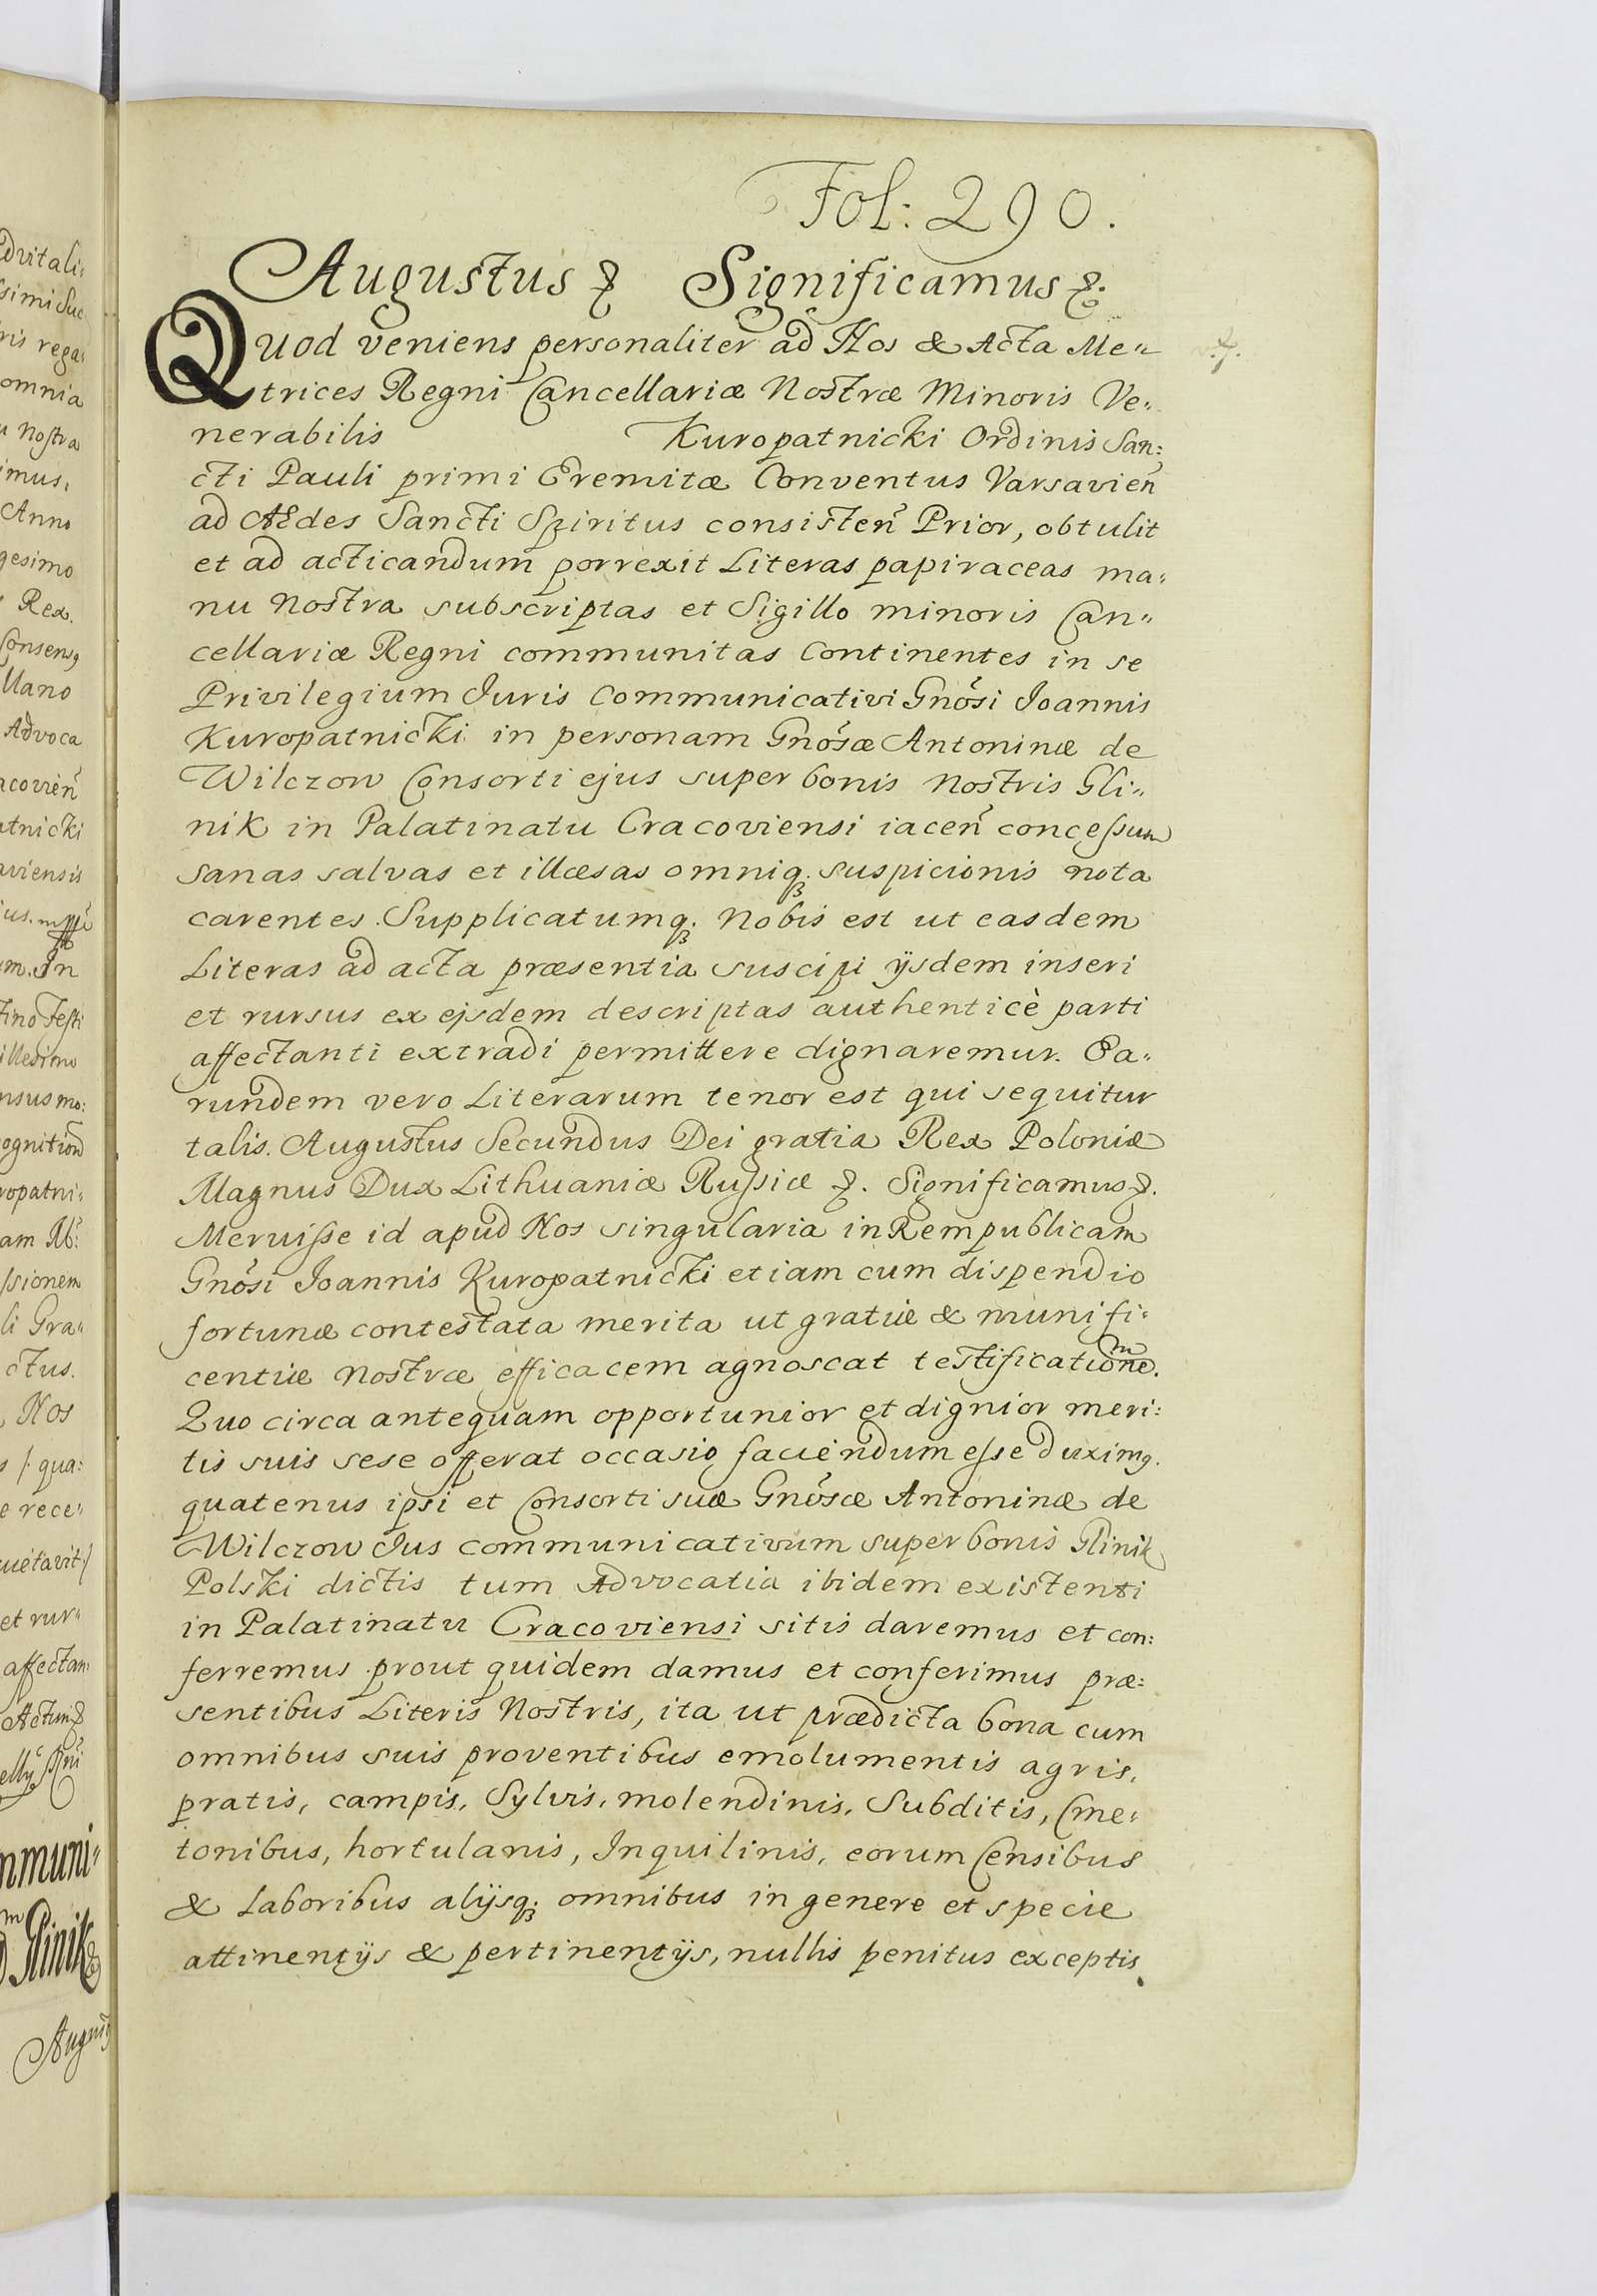 Fol: 290.
Augustus & Significamus &.
Quod veniens personaliter ad Nos & Acta Me=
trices Regni Cancellariæ Nostræ Minoris Ve=
nerabilis Kuropatnicki Ordinis San=
cti Pauli primi Eremitæ Conventus Varsavien̄
ad Ædes Sancti Spiritus consisten̄ Prior, obtulit
et ad acticandum porrexit Literas papiraceas ma=
nu Nostra subscriptas et Sigillo minoris Can=
cellariæ Regni communitas Continentes in se
Privilegium Iuris Communicativi Gnosi Ioannis
Kuropatnicki in personam Gnosæ Antoninæ de
Wilczow Consorti ejus super bonis Nostris Gli=
nik in Palatinatu Cracoviensi iacen̄ concessum
sanas salvas et illæsas omniq; suspicionis nota
carentes. Supplicatumq; Nobis est ut easdem
Literas ad acta præsentia suscipi ijsdem inseri
et rursus ex ejsdem descriptas authenticè parti
affectanti extradi permittere dignaremur. Ea=
rundem vero Literarum tenor est qui sequitur
talis. Augustus Secundus Dei gratia Rex Poloniæ
Magnus Dux Lithuaniæ Russiæ &. Significamus &.
Meruisse id apud Nos singularia in Rempublicam
Gnosi Ioannis Kuropatnicki etiam cum dispendio
fortunæ contestata merita ut gratiæ & munifi=
centiæ Nostræ efficacem agnoscat testificationem.
Quo circa antequam opportunior et dignior meri=
tis suis sese offerat occasio faciendum esse duximq.
quatenus ipsi et Consorti suæ Gnosæ Antoninæ de
Wilczow Ius communicativum super bonis Glinik
Polski dictis tum Advocatia ibidem existenti
in Palatinatu Cracoviensi sitis daremus et con=
ferremus prout quidem damus et conferimus præ=
sentibus Literis Nostris, ita ut prædicta bona cum
omnibus suis proventibus emolumentis agris,
pratis, campis, Sylvis, molendinis, Subditis, Cme=
tonibus, hortulanis, Inquilinis, eorum Censibus
& Laboribus alijsq; omnibus in genere et specie
attinentijs & pertinentijs, nullis penitus exceptis